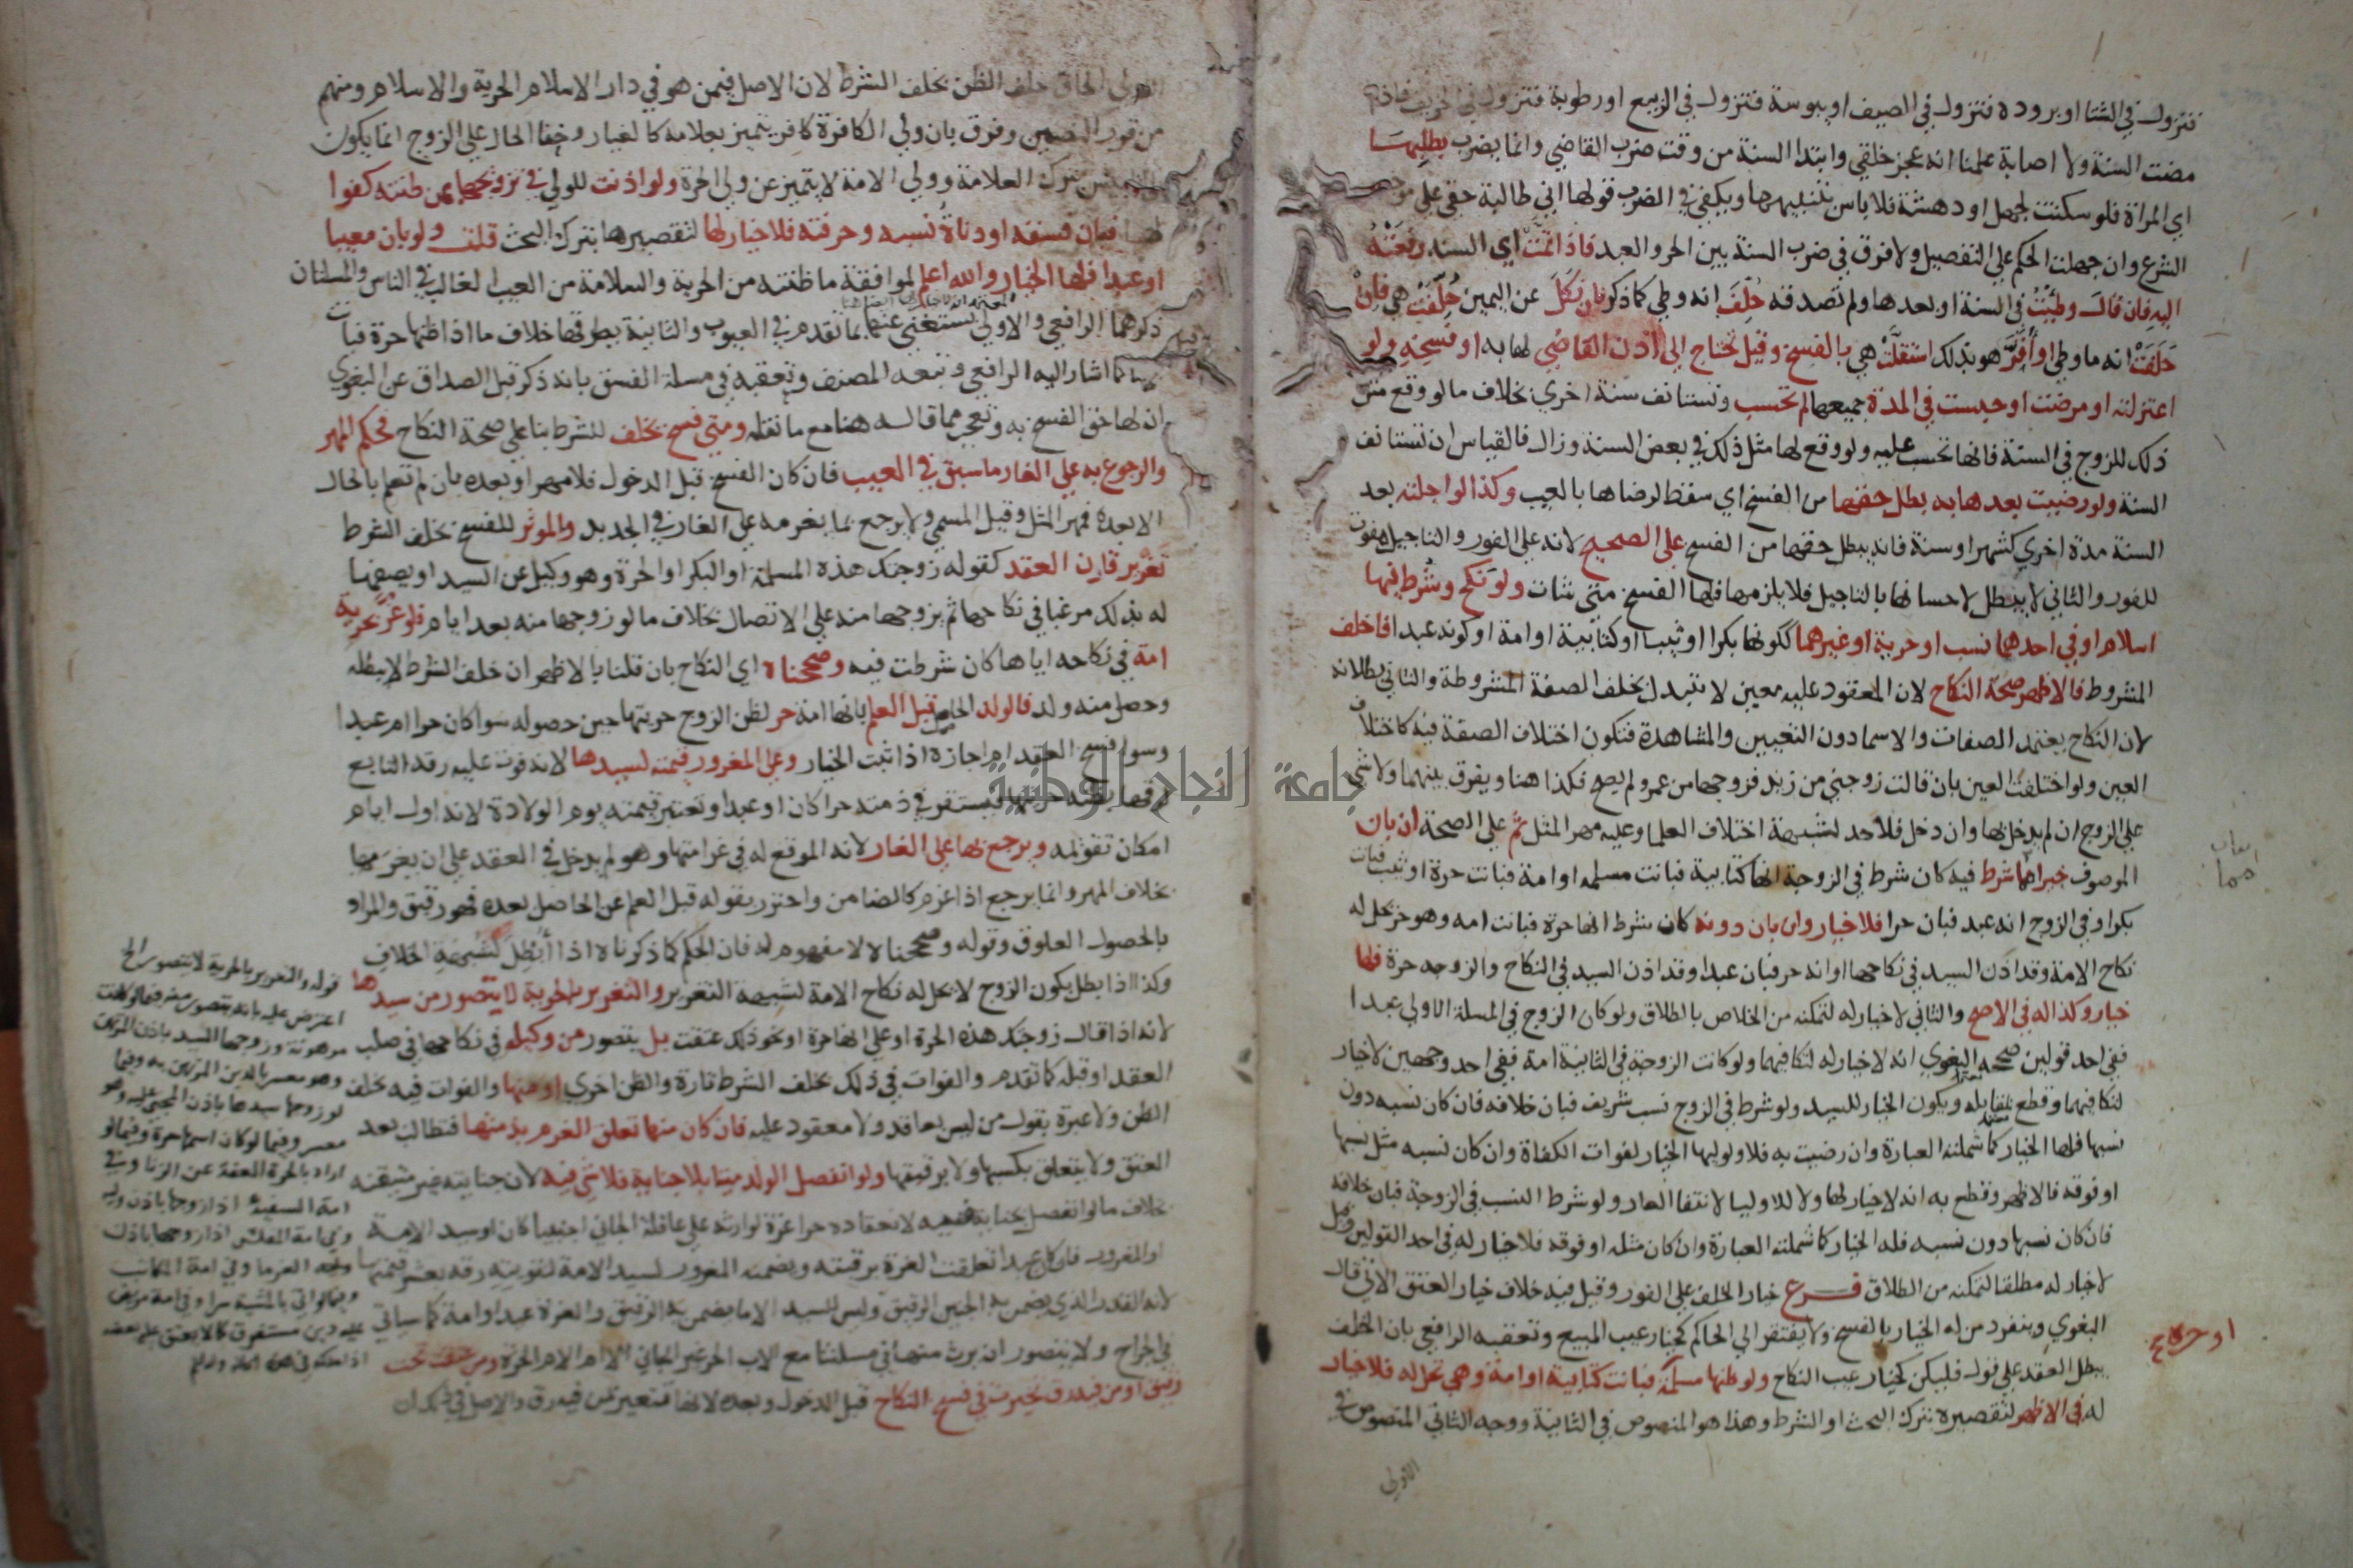 فتزول في الشتا او برودة فتزول في الصيف او يبوسة فتزول في الربيع او رطوبة فتزول في الخريف فاذا
مضت السنة ولا اصابة علمنا انه عجز خلقي وابتدا السنة من وقت ضرب القاضي وانما يضرب بطلبها
اي المراة فلو سكتت لجهل او دهشة فلا باس بتنبيهها ويكفي في الضرب قولها اني طالبة حقي على موجب
الشرع وان جهلت الحكم على التفصيل ولا فرق في ضرب السنة بين الحر والعبد فاذا تمت اي السنة رفعته
اليه فان قال وطيت في السنة او بعدها ولم تصدقه حلف انه وطي كما ذكر فان نكل عن اليمين حلفت هي فان
حلفت انه ما وطي او اقر هو بذلك استقلت هي بالفسخ وقيل تحتاج الى اذن القاضي لها به او فسخه ولو
اعتزلته او مرضت او حبست في المدة جميعها لم تحسب وتستانف سنة اخري بخلاف ما لو وقع مثل
ذلك للزوج في السنة فانها تحسب عليه ولو وقع لها مثل ذلك في بعض السنة وزال فالقياس ان تستانف
السنة ولو رضيت بعدها به بطل حقها من الفسخ اي سقط لرضاها بالعيب وكذا لو اجلته بعد
السنة مدة اخري كشهر او سنة فانه يبطل حقها من الفسخ على الصحيح لانه على الفور والتاجيل مفوت
للفور والثاني لا يبطل لاحسانها بالتاجيل فلا يلزمها فلها الفسخ متى شات ولو نكح وشرط فيها
اسلام او في احدهما نسب او حرية او غيرهما ككونها بكرا او ثيبا او كتابية او امة او كونه عبدا فاخلف
المشروط فالاظهر صحة النكاح لان المعقود عليه معين لا يتبدل بخلف الصفة المشروطة والثاني بطلانه
لان النكاح يعتمد الصفات والاسما دون التعيين والمشاهدة فتكون اختلاف الصفة فيه كاختلاف
العين ولو اختلفت العين بان قالت زوجني من زيد فزوجها من عمرو لم يصح فكذا هنا ويفرق بينهما ولا شي
على الزوج ان لم يدخل بها وان دخل فلا حد لشبهة اختلاف العلما وعليه مهر المثل ثم على الصحة ان بان
الموصوف خيرا مما شرط فيه كان شرط في الزوجة انها كتابية فبانت مسلمة او امة فبانت حرة او ثيب فبانت
بكرا وفي الزوج انه عبد فبان حرا فلا خيار وان بان دونه كان شرط انها حرة فبانت امه وهو حر تحل له
نكاح الامة وقد اذن السيد في نكاحها او انه حر فبان عبدا وقد اذن السيد في النكاح والزوجه حرة فلها
خيار وكذا له في الاصح والثاني لا خيار له لتمكنه من الخلاص بالطلاق ولو كان الزوج في المسلة الاولى عبدا
ففي احد قولين صححه البغوي انه لا خيار له لتكافيهما ولو كانت الزوجة في الثانية امة ففي احد وجهين لا خيار
لتكافيهما وقطع بمقابله ويكون الخيار للسيد ولو شرط في الزوج نسب شريف فبان خلافه فان كان نسبه دون
نسبها فلها الخيار كما شملته العبارة وان رضيت به فلاوليها الخيار لفوات الكفاة وان كان نسبه مثل نسبها
او فوقه فالاظهر وقطع به انه لا خيار لها ولا للاوليا لانتفا العار ولو شرط النسب في الزوجة فبان خلافه
فان كان نسبها دون نسبه فله الخيار كما شملته العبارة وان كان مثله او فوقه فلا خيار له في احد القولين وقيل
لا خيار له مطلقا لتمكنه من الطلاق فرع خيار الخلف على الفور وقيل فيه خلاف خيار العتق الاتي قال
البغوي وينفرد من له الخيار بالفسخ ولا يفتقر الى الحاكم كخيار عيب المبيع وتعقبه الرافعي بان الخلف
يبطل العقد على قول فليكن كخيار عيب النكاح ولو ظنها مسلمة فبانت كتابية او امة وهي تحل له فلا خيار
له في الاظهر لتقصيره بترك البحث او الشرط وهذا هو المنصوص في الثانية ووجه الثاني المنصوص في
الاولى
الاولى الحاق خلف الظن بخلف الشرط لان الاصل فيمن هو في دار الاسلام الحرية والاسلام ومنهم
من قرر النصين وفرق بان ولي الكافرة كافر يتميز بعلامة كالغيار وخفا الحال على الزوج انما يكون
بترك العلامة وولي الامة لا يتميز عن ولي الحرة ولو اذنت للولي في تزويجها بمن ظنته كفوا
لها فبان فسقه او دناة نسبه وحرفته فلا خيار لها لتقصيرها بترك البحث قلت ولو بان معيبا
او عبدا فلها الخيار والله اعلم لموافقة ما ظنته من الحرية والسلامة من العيب الغالب في الناس والمسلتان
ذكرهما الرافعي والاولى استغنى عنها بما تقدم في العيوب والثانية بطرقها خلاف ما اذا ظنها حرة فبانت
كما اشار اليه الرافعي وتبعه المصنف وتعقبه في مسلة الفسق بانه ذكر قبل الصداق عن البغوي
ان لها حق الفسخ به وتعجب مما قاله هنا مع ما نقله ومتى فسخ بخلف للشرط بنا على صحة النكاح فحكم المهر
والرجوع به على الغار ما سبق في العيب فان كان الفسخ قبل الدخول فلا مهر او بعده بان لم تعلم بالحال
الا بعده فمهر المثل وقيل المسمى ولا يرجع بما يغرمه على الغار في الجديد والموثر للفسخ بخلف الشرط
تغرير قارن العقد كقوله زوجتك هذه المسلمة او البكر او الحرة وهو وكيل عن السيد او يصفها
له بذلك مرغبا في نكاحها ثم يزوجها منه على الاتصال بخلاف ما لو زوجها منه بعد ايام فلو غر بحرية
امة في نكاحه اياها كان شرطت فيه وصححناه اي النكاح بان قلنا بالاظهر ان خلف الشرط لا يبطله
وحصل منه ولد فالولد الحاصل قبل العلم بانها امة حر لظن الزوج حريتها حين حصوله سوا كان حرا ام عبدا
وسوا فسخ العقد ام اجازه اذا ثبت الخيار وعلى المغرور قيمته لسيدها لانه فوت عليه رقه التابع
لرقها بظنه حريتها فيستقر في ذمته حرا كان او عبدا وتعتبر قيمته يوم الولادة لانه اول ايام
امكان تقويمه ويرجع بها على الغار لانه الموقع له في غرامتها وهو لم يدخل في العقد على ان يغرمها
بخلاف المهر وانما يرجع اذا غرم كالضامن واحترز بقوله قبل العلم عن الحاصل بعده فهو رقيق والمراد
بالحصول العلوق وقوله وصححناه لا مفهوم له فان الحكم كما ذكرناه اذا ابطل لشبهة الخلاف
وكذا اذا بطل بكون الزوج لا يحل له نكاح الامة لشبهة التغرير والتغرير بالحرية لا يتصور من سيدها
لانه اذا قال زوجتك هذه الحرة او على انها حرة او نحو ذلك عتقت بل يتصور من وكيله في نكاحها في صلب
العقد او قبله كما تقدم والفوات في ذلك بخلف الشرط تارة والظن اخرى او منها والفوات فيه بخلف
الظن ولا عبرة بقول من ليس بعاقد ولا معقود عليه فان كان منها تعلق الغرم بذمتها فتطالب بعد
العتق ولا يتعلق بكسبها ولا برقبتها ولو انفصل الولد ميتا بلا جناية فلا شي فيه لان حياته غير متيقنة
بخلاف ما لو انفصل بجناية ففيه لانعقاده حرا غرة لوارثه على عاقلة الجاني اجنبيا كان او سيد الامة
او المغرور فان كان عبدا تعلقت الغرة برقبته ويضمنه المغرور لسيد الامة لتفويته رقه بعشر قيمتها
لانه القدر الذي يضمن به الجنين الرقيق وليس للسيد الا ما يضمن به الرقيق والغرة عبد او امة كما سياتي
في الجراح ولا يتصور ان يرث منها في مسلتنا مع الاب الحر غير الجاني الا ام الام الحرة ومن عتقت تحت
رقيق او من فيه رق تخيرت في فسخ النكاح قبل الدخول وبعده لانها تتعير بمن فيه رق والاصل في ذلك ان
قوله والتغرير بالحرية لا يتصور الخ
اعترض عليه بانه يتصور منه فيما لو كانت
مرهونة وزوجها السيد باذن المرتهن
وهو معسر بالدين المرتهن به وفيما
لو زوجها سيدها باذن المجني عليه وهو
معسر وفيما لو كان اسمها حرة وفيما لو
اراد بالحرة العفة عن الزنا وفي
امة السفيه اذا زوجها باذن وليه
وفي امة المفلس اذا زوجها باذن
الغرما وفي امة المكاتب
او حرة صح
جامعة النجاح الوطنية